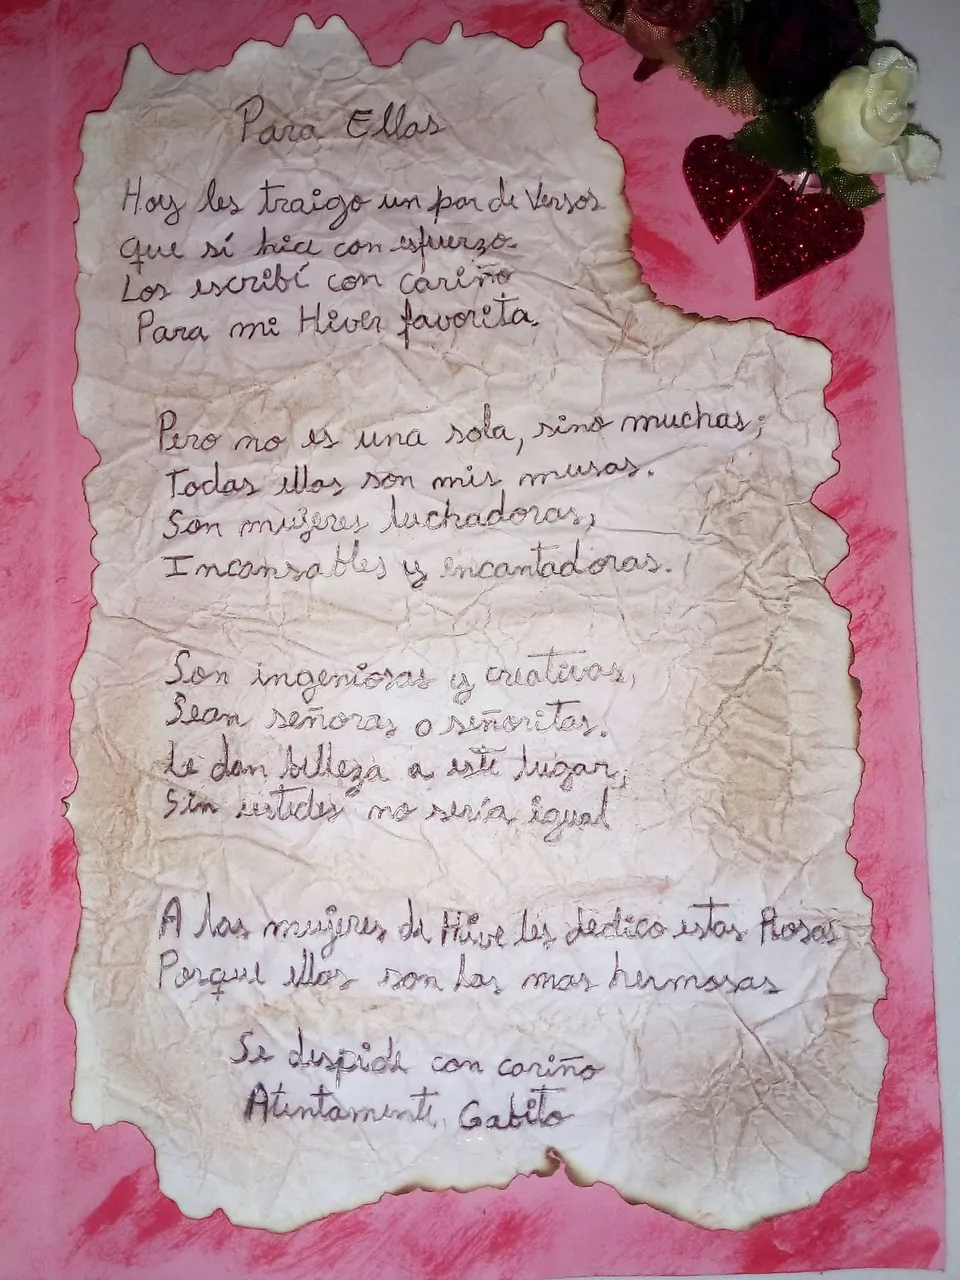 Para Ellas
Hoy les traigo un par de Versos
que sí hice con esfuerzo.
Los escribí con cariño
Para mi Hiver favorita.
Pero no es una sola, sino muchas;
Todas ellas son mis musas.
Son mujeres luchadoras,
Incansables y encantadoras.
Son ingeniosas y creativas,
Sean señoras o señoritas.
Le dan belleza a este lugar,
Sin ustedes no sería igual
A las mujeres de Hive les dedico estas Rosas
Porque ellas son las mas hermosas
Se despide con cariño
Atentamente, Gabito